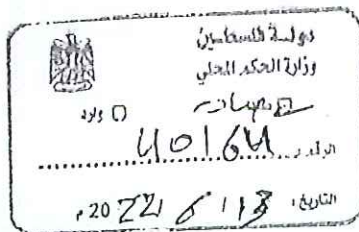 دولة فلسطين
وزارة الحكم المحلي
☑ صادر ☐ وارد
الرقم: 40164
التاريخ: 13 / 6 / 2022م